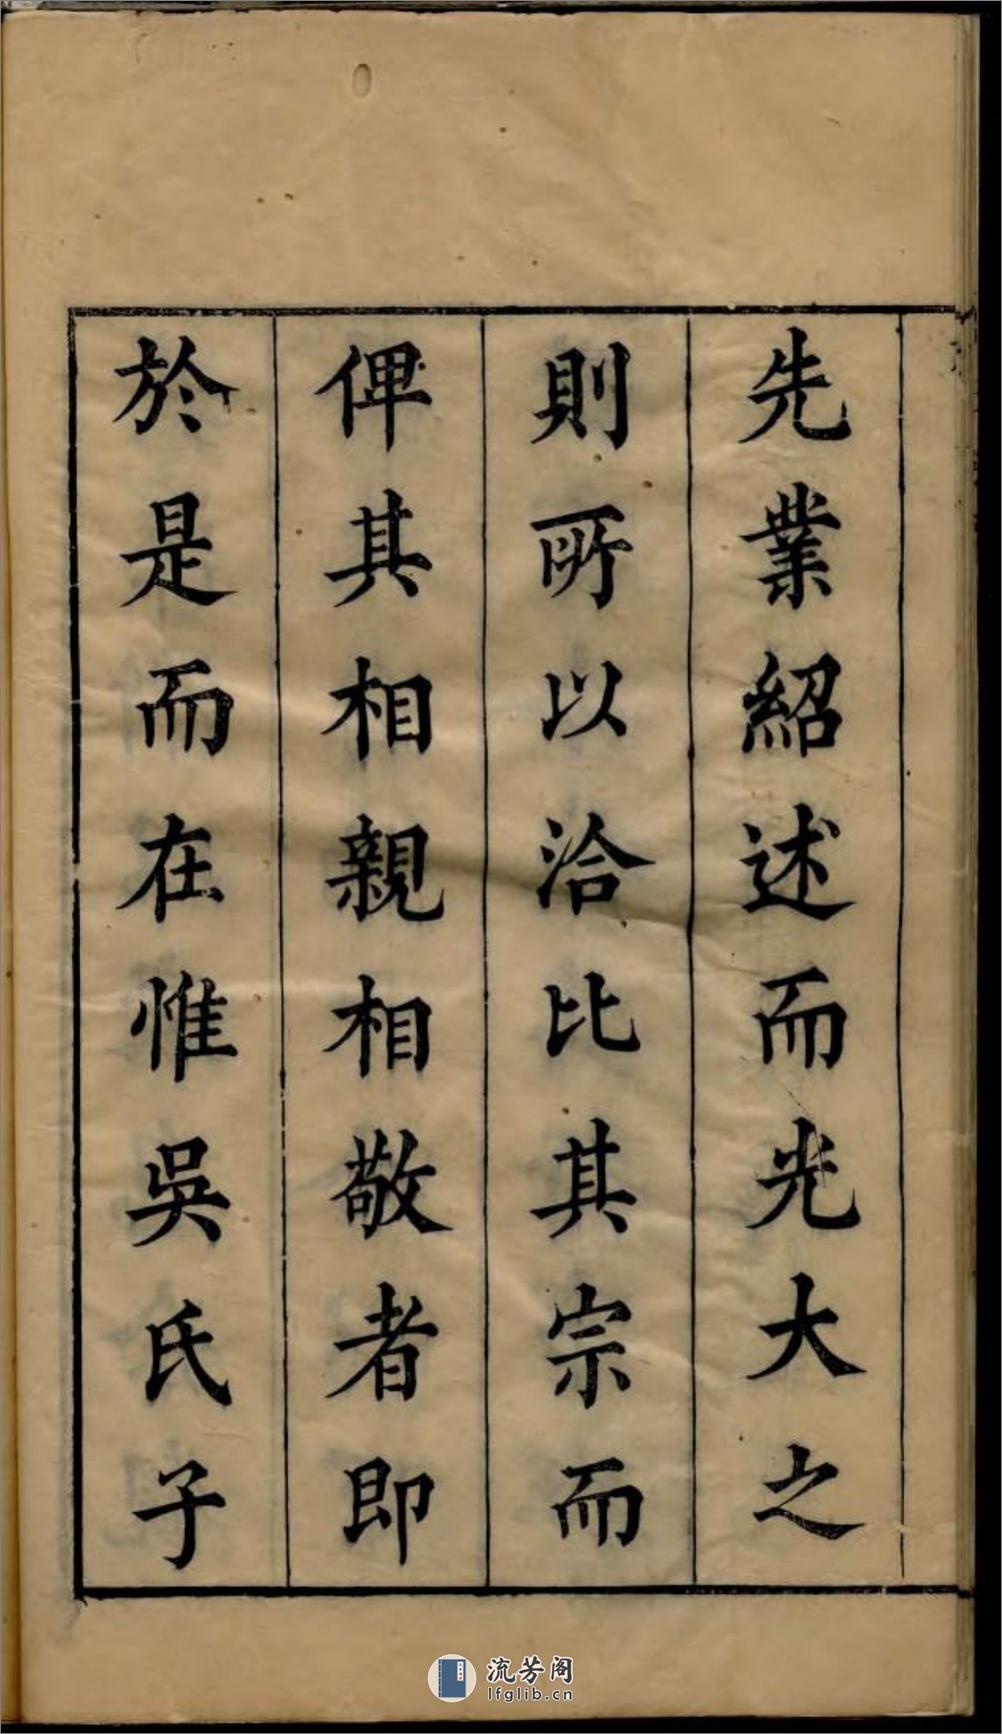 先業紹述而光大之
則所以洽比其宗而
俾其相親相敬者即
於是而在惟吳氏子
流芳阁
lfglib.cn